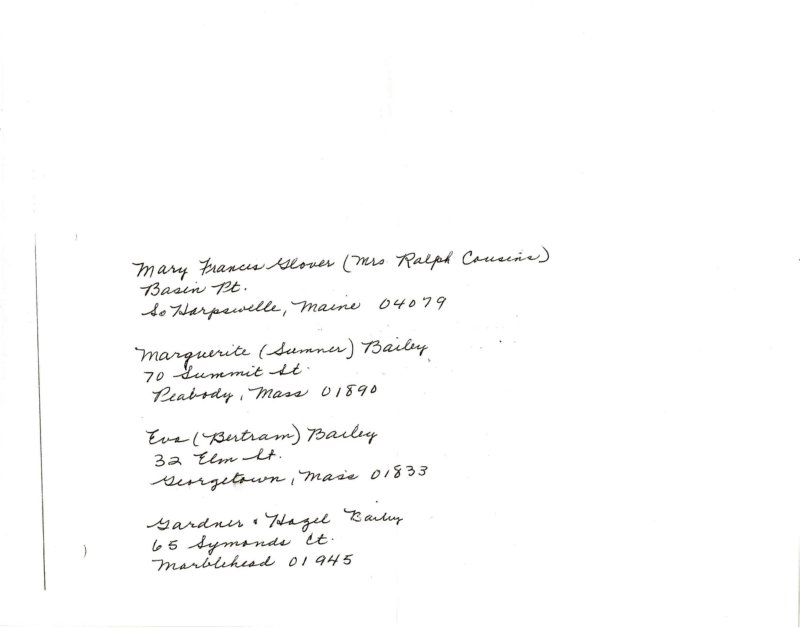 Mary Francis Glover (Mrs Ralph Cousins)
Basin Pt.
So Harpswelle, Maine 04079
Marguerite (Sumner) Bailey
70 Summit St.
Peabody, Mass 01890
Eva (Bertram) Bailey
32 Elm St.
Georgetown, Mass 01833
Gardner & Hazel Bailey
65 Symonds Ct.
Marblehead 01945